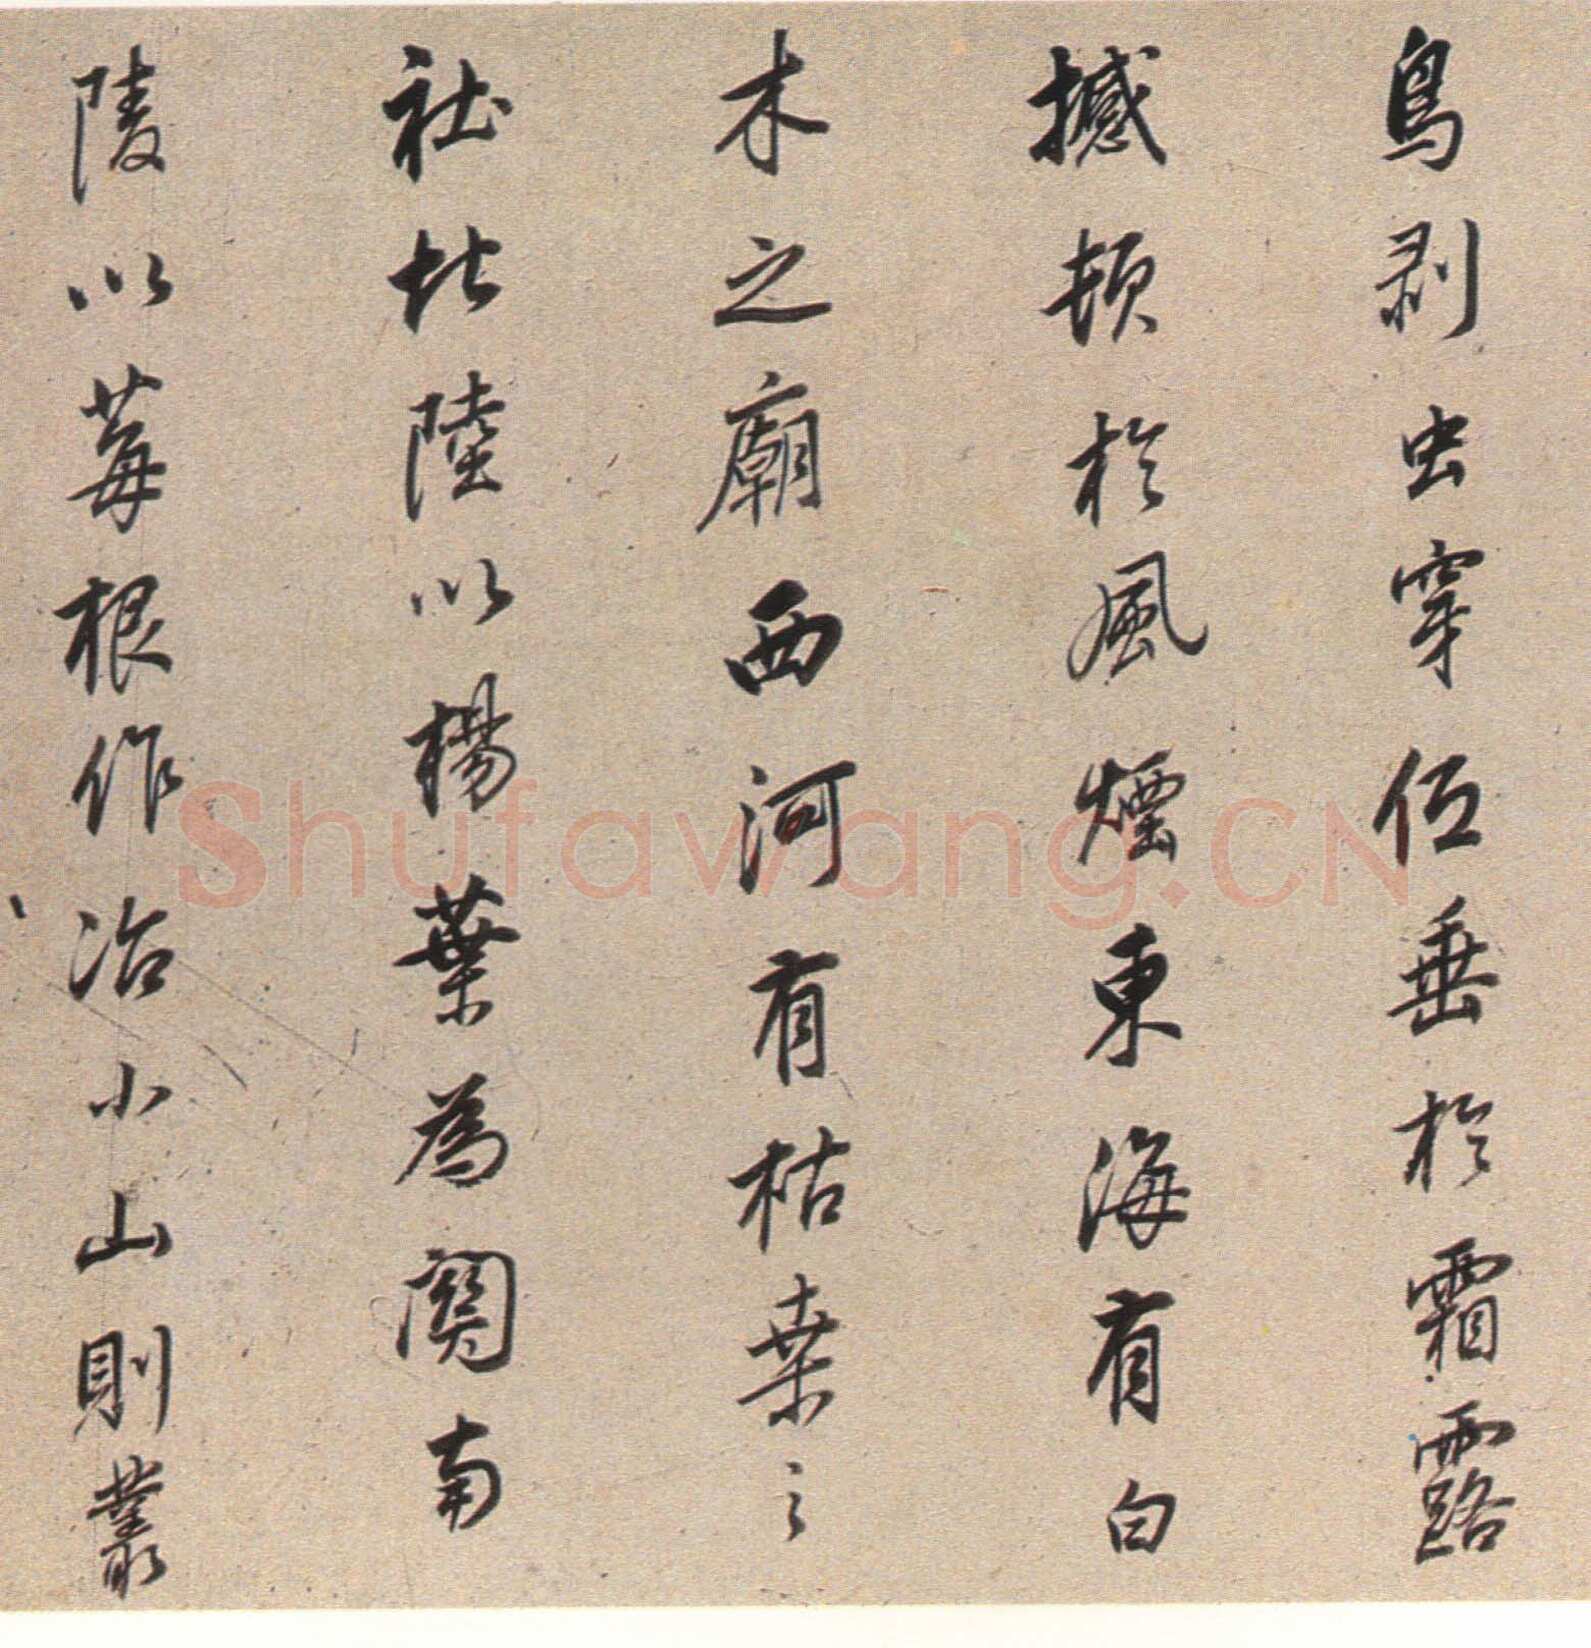 鳥剥虫穿低垂於霜露
撼頓於風煙東海有白
木之廟西河有枯桒之
社北陸以楊葉為関南
陵以莓根作冶小山則叢
Shufawang.CN